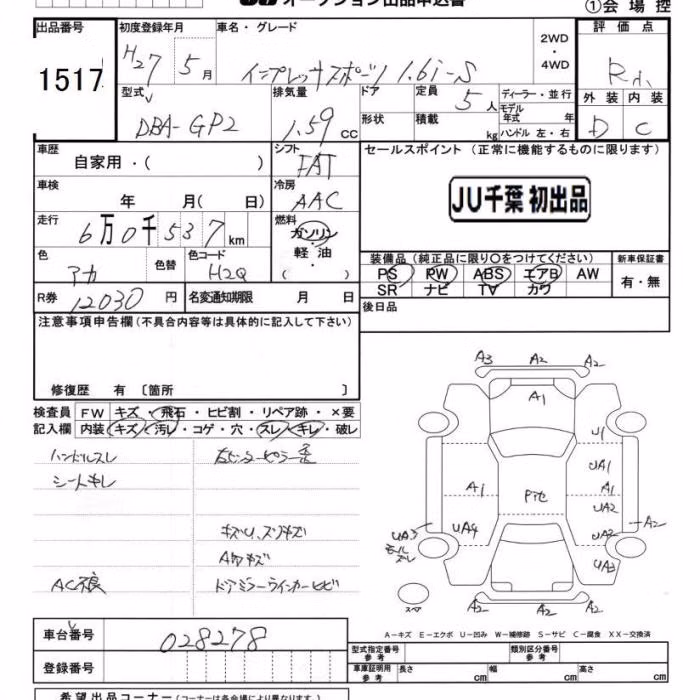 オークション出品申込書
①会場控
出品番号 初度登録年月 車名・グレード 評価点
1517 H27 5月 インプレッサスポーツ 1.6i-S 2WD・4WD
型式 排気量 ドア 定員 ディーラー・並行 外装 内装
DBA-GP2 1.59 CC 5人 モデル年式 年 D C
形状 積載 kg ハンドル 左・右
車歴 シフト セールスポイント (正常に機能するものに限ります)
自家用・( ) FAT
車検 冷房
年 月(日) AAC JU千葉 初出品
走行 燃料
6万0千537km ガソリン・軽油・( )
色 色替 色コード 装備品(純正品に限り○をつけてください) 新車保証書
アカ H2Q PS PW ABS エアB AW 有・無
SR ナビ TV カワ
R券 12030円 名変通知期限 月 日 後日品
注意事項申告欄(不具合内容等は具体的に記入して下さい)
修復歴 有〔箇所 〕
検査員 FW キズ・飛石・ヒビ割・リペア跡・×要
記入欄 内装 キズ・汚レ・コゲ・穴・スレ・キレ・破レ
ハンドルスレ
シートキレ
キズU、スリキズ
AC不良 ドアミラーウインカーヒビ
A3 A2 A2
A1
U1
UA1
A1 A1
UA2
UA4 UA2 A2
UA3
UA3
モールズレ
スペア A2 A2
A-キズ E-エクボ U-凹み W-補修跡 S-サビ C-腐食 XX-交換済
車台番号 028278
型式指定番号 参考 類別区分番号 参考
登録番号 車庫証明用 参考 長さ cm 幅 cm 高さ cm
希望出品コーナー(コーナーは各会場により異なります。)